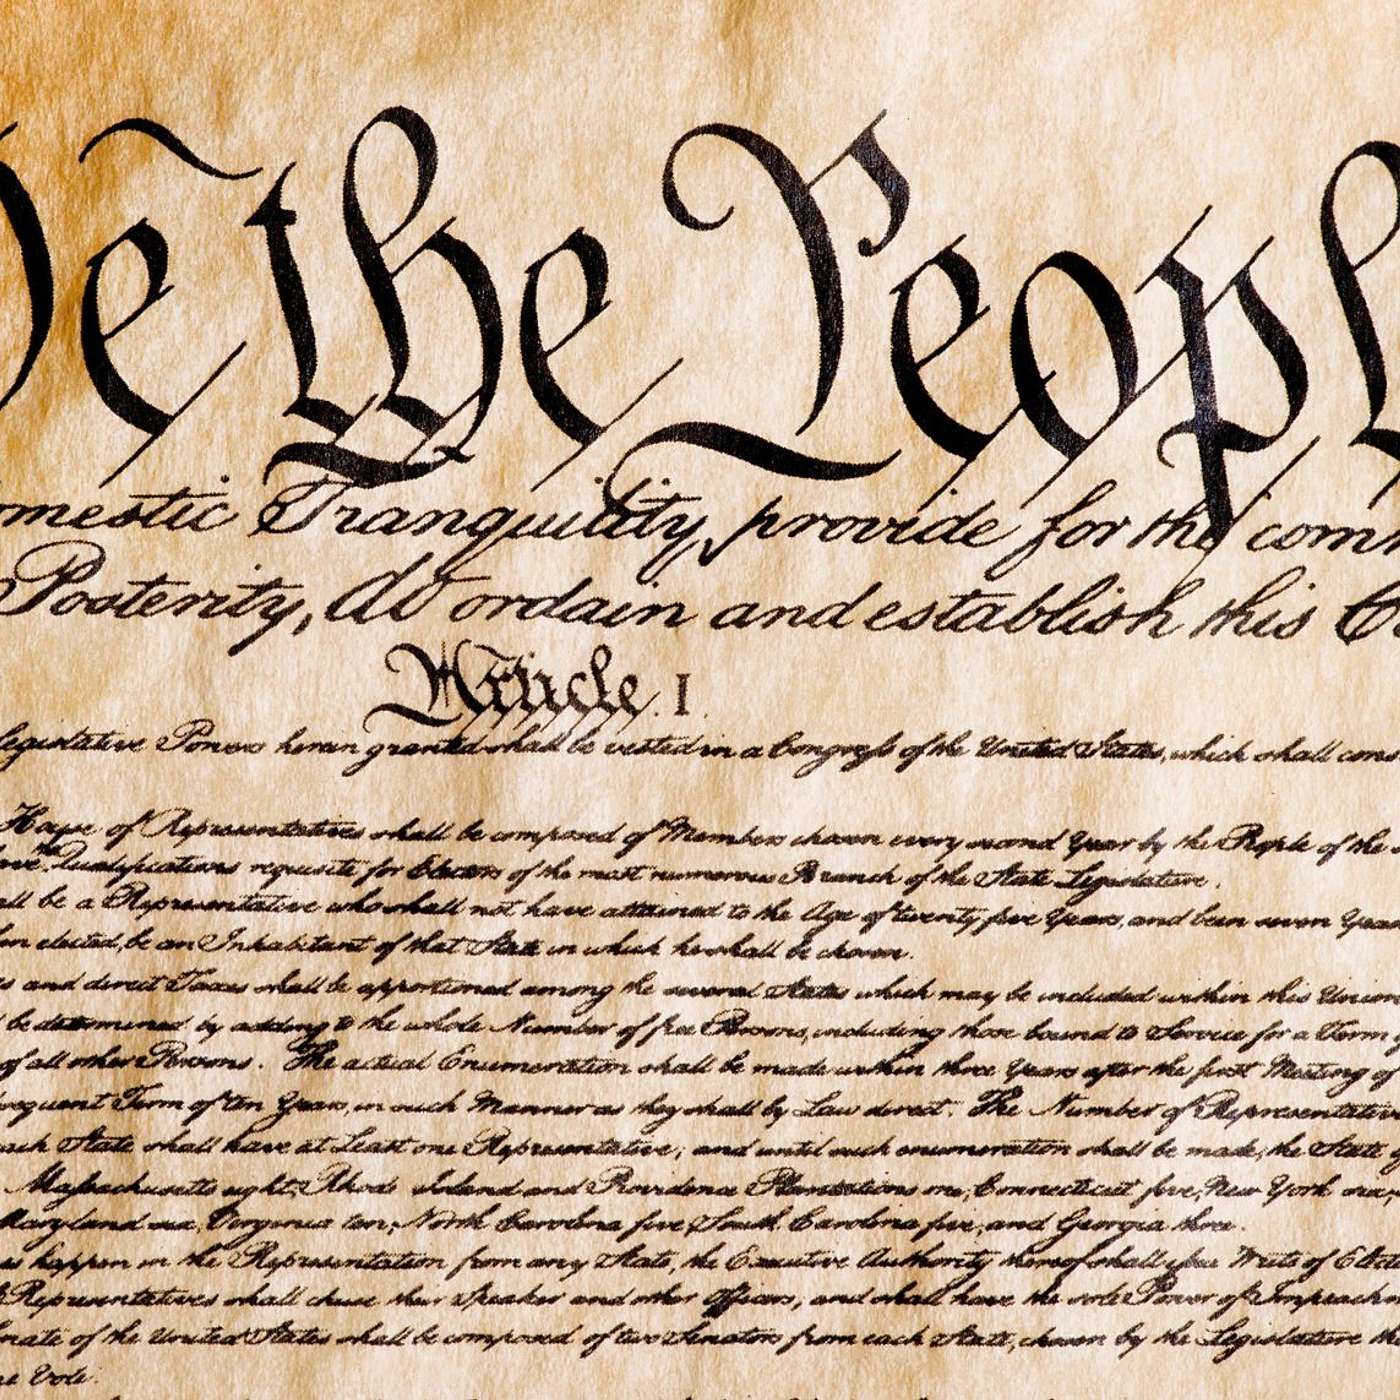 We the People
omestic Tranquility, provide for the com
Posterity, do ordain and establish this Co
Article. I.
Legislative Powers herein granted shall be vested in a Congress of the United States, which shall cons
House of Representatives shall be composed of Members chosen every second Year by the People of the
have the Qualifications requisite for Electors of the most numerous Branch of the State Legislature.
all be a Representative who shall not have attained to the Age of twenty five Years, and been seven Year
en elected, be an Inhabitant of that State in which he shall be chosen.
s and direct Taxes shall be apportioned among the several States which may be included within this Union
be determined by adding to the whole Number of free Persons, including those bound to Service for a Term
of all other Persons. The actual Enumeration shall be made within three Years after the first Meeting of
sequent Term of ten Years, in such Manner as they shall by Law direct. The Number of Representatives
each State shall have at Least one Representative; and until such enumeration shall be made, the State
Massachusetts eight, Rhode Island and Providence Plantations one, Connecticut five, New York six,
Maryland six, Virginia ten, North Carolina five, South Carolina five, and Georgia three.
es happen in the Representation from any State, the Executive Authority thereof shall issue Writs of Elect
Representatives shall chuse their Speaker and other Officers; and shall have the sole Power of Impeachm
enate of the United States shall be composed of two Senators from each State, chosen by the Legislature th
ne Vote.